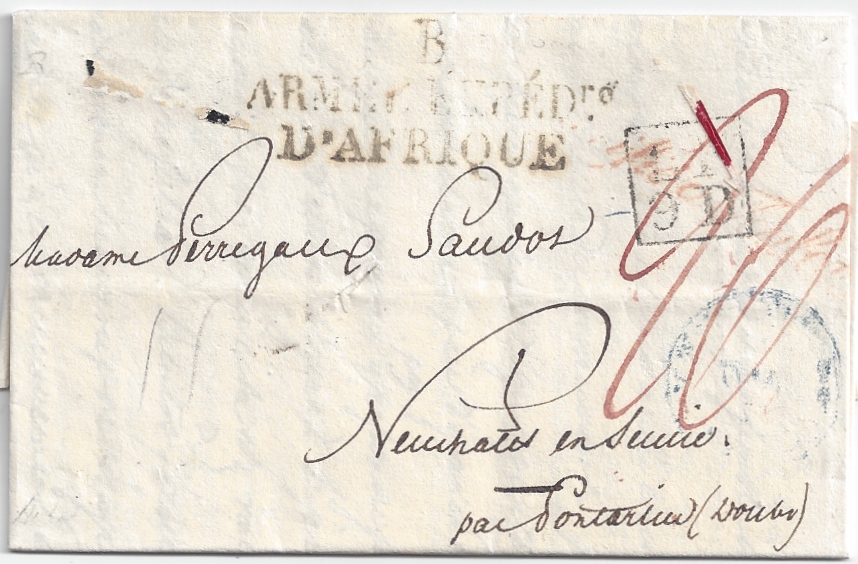 B
ARMÉE EXPÉD.re
D'AFRIQUE
L.F.
9 D
Madame Perregaux Sandos
Neuchatel en Suisse.
par Pontarlier (Doubs)